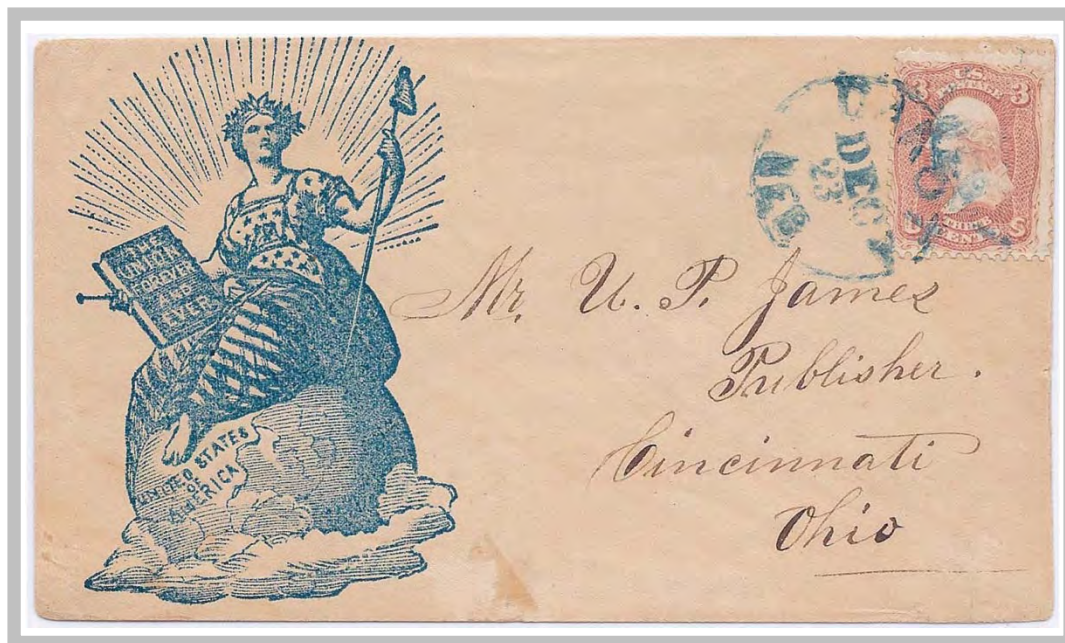 THE
UNION
FOREVER
AND
EVER
UNITED STATES
OF
AMERICA
DEC
23
U.S.
POSTAGE
3 3
THREE
CENTS
Mr. U. P. James
Publisher.
Cincinnati
Ohio